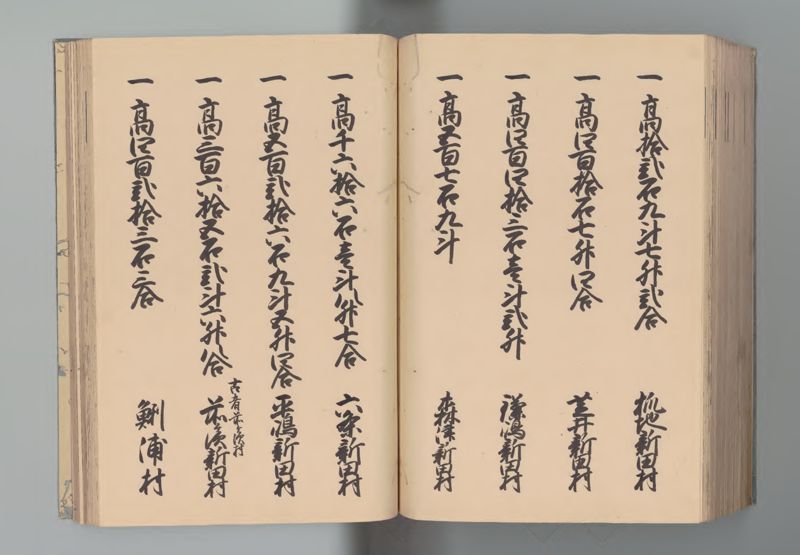 一 高拾弐石九斗七升弐合 狐地新田村
一 高四百拾石七升四合 芝井新田村
一 高四百四拾三石壱斗弐升 鎌嶋新田村
一 高五百七石九斗 森津新田村
一 高千六拾六石壱斗八升七合 六条新田村
一 高五百弐拾六石九斗五升四合 平嶋新田村
一 高三百六拾五石弐斗六升八合 古者前ヶ須村 前ヶ須新田村
一 高四百弐拾三石三合 鯏浦村